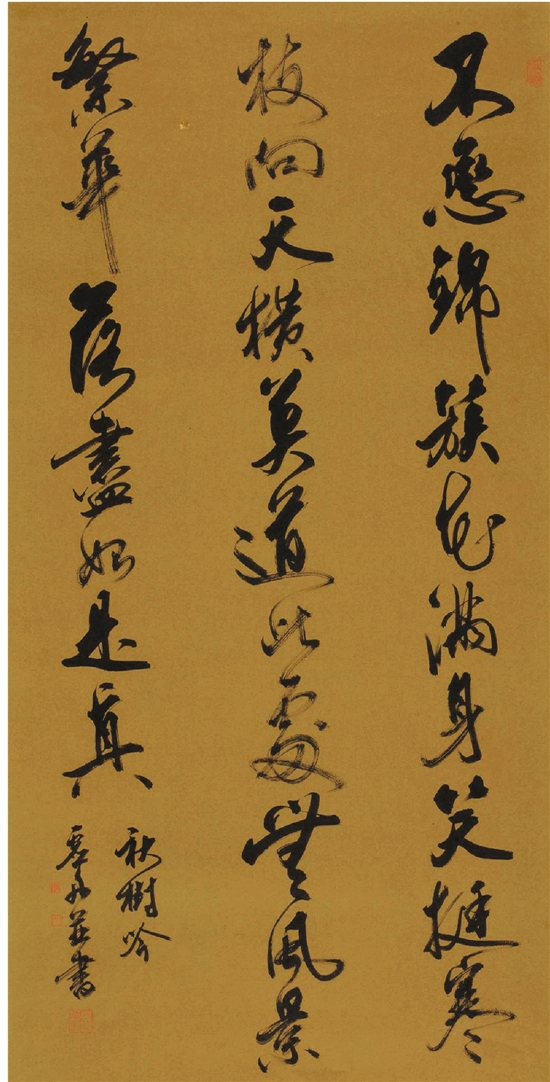 不戀錦簇花滿身笑挺寒
枝向天橫莫道此處無風景
繁華落盡始是真
秋樹吟
並書